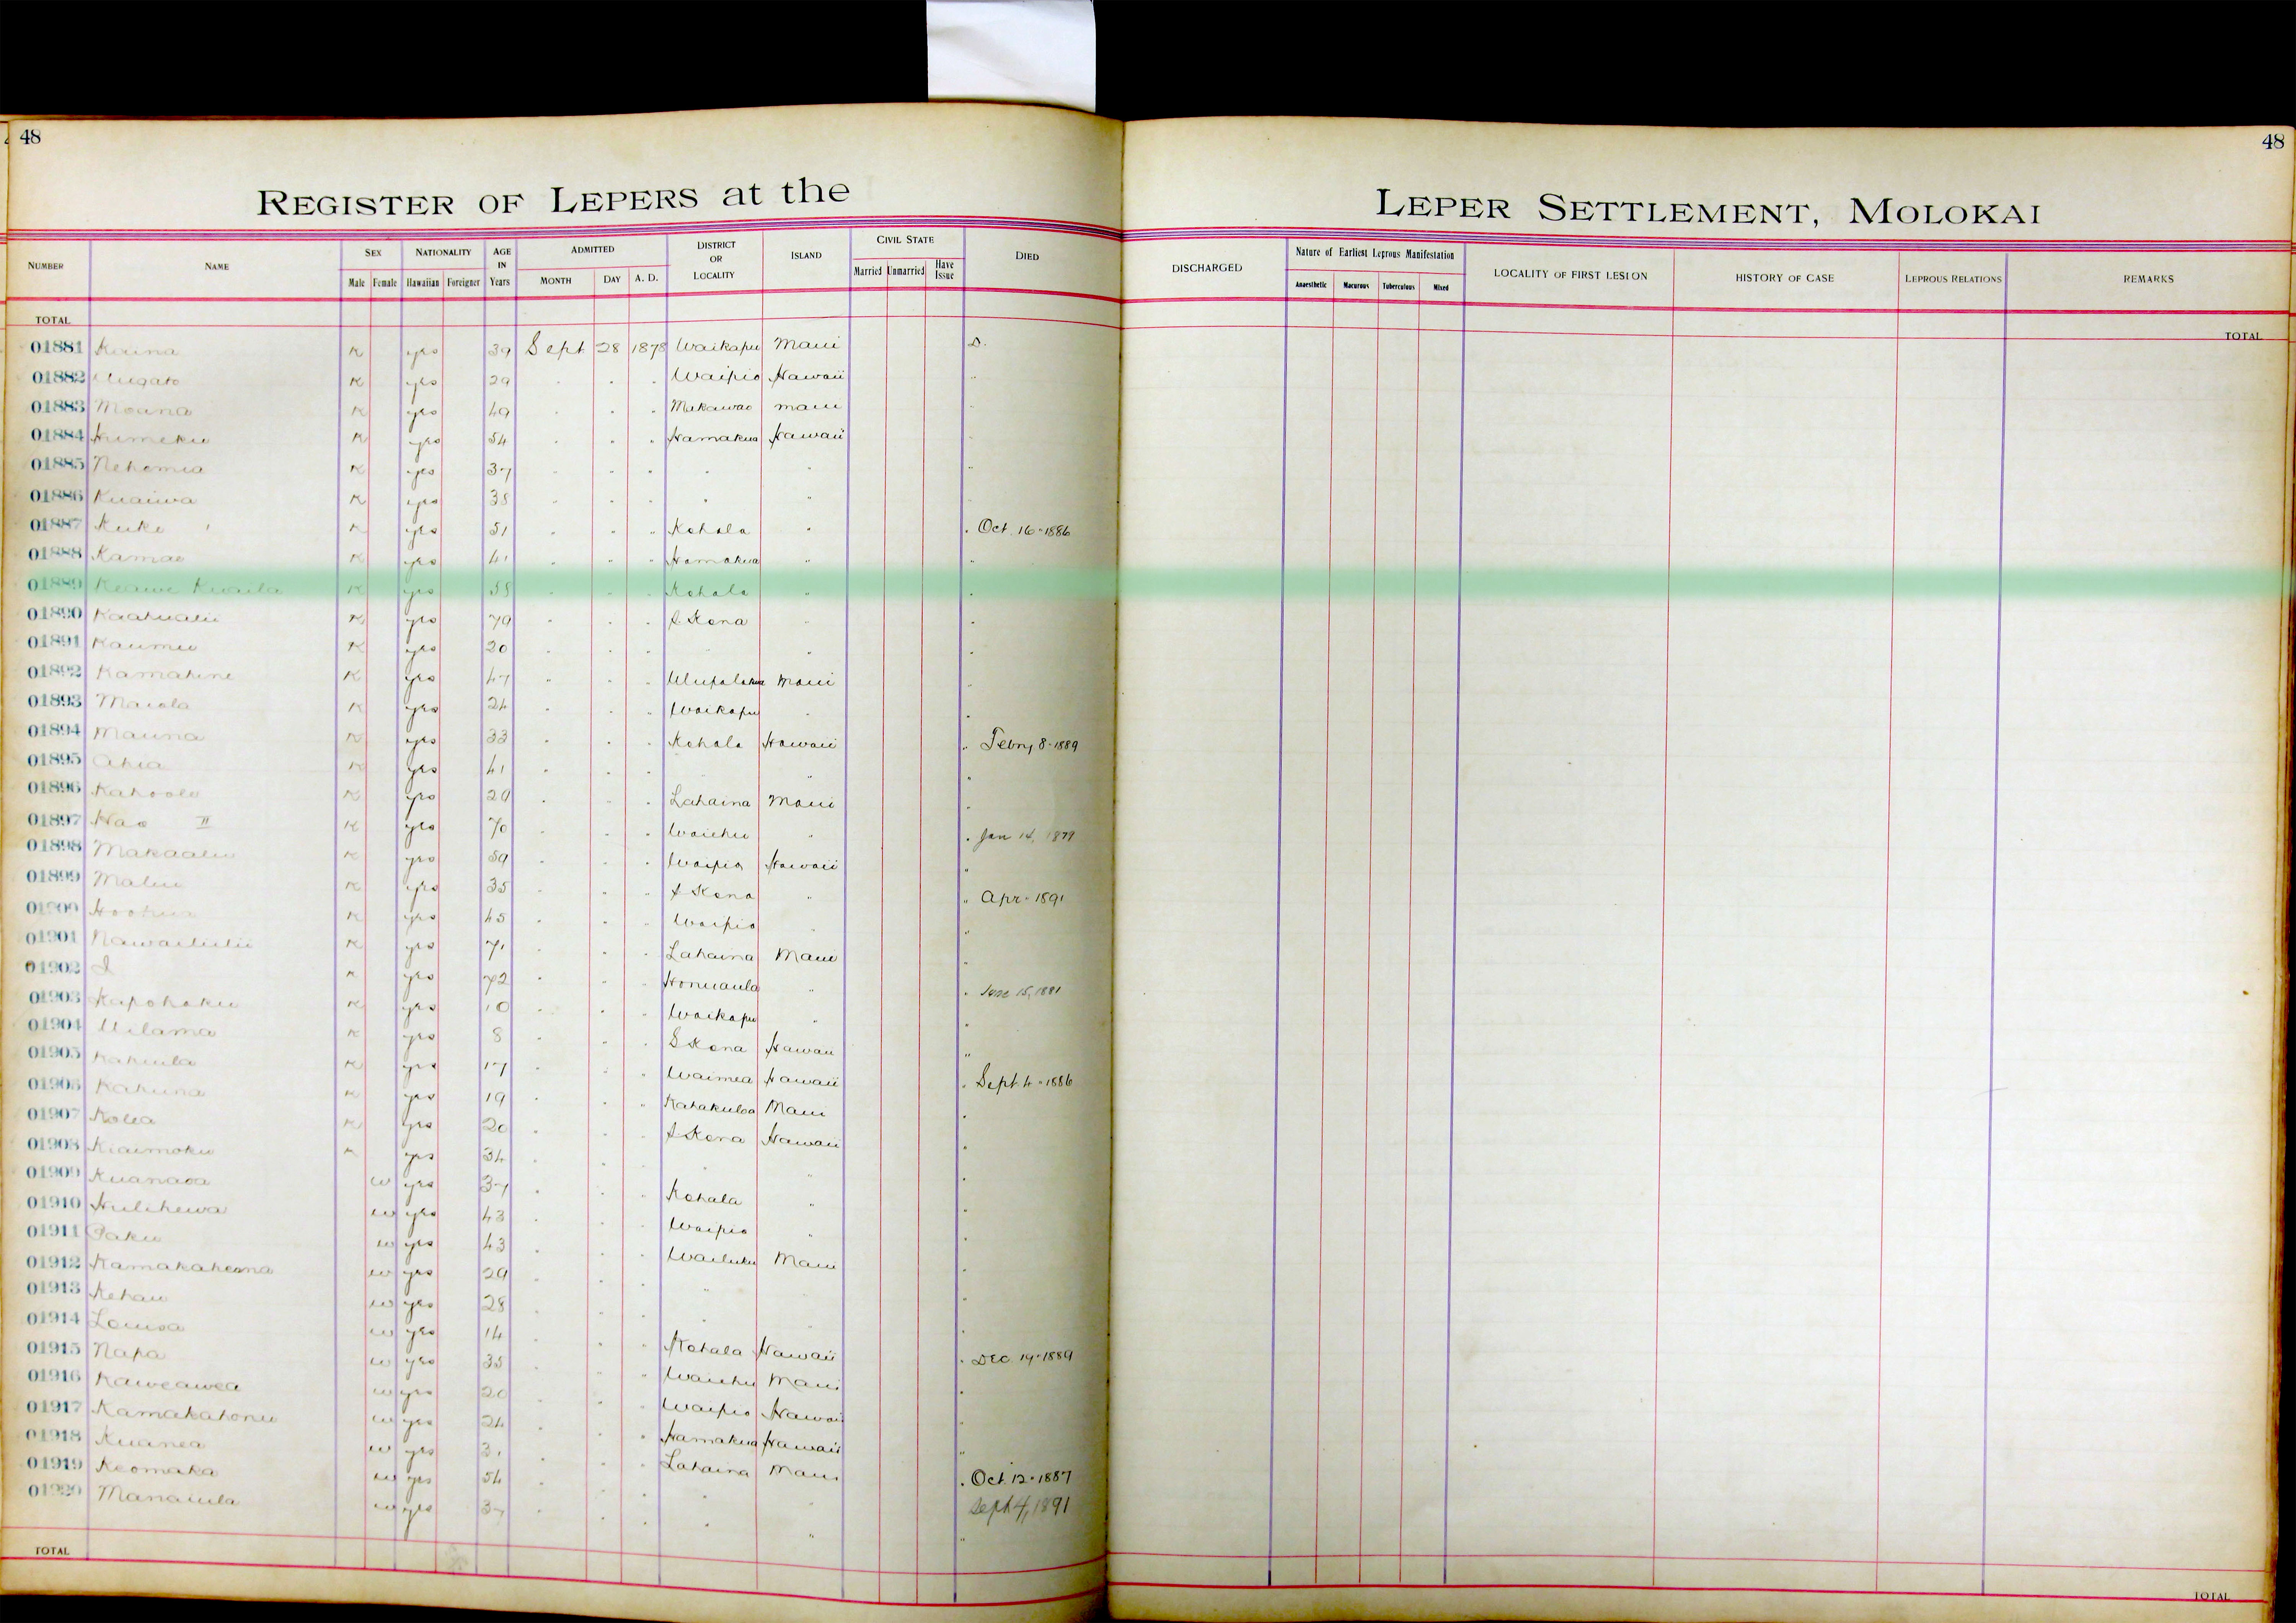 48
48
REGISTER OF LEPERS at the
LEPER SETTLEMENT, MOLOKAI
NUMBER NAME SEX NATIONALITY AGE IN Years ADMITTED DISTRICT OR LOCALITY ISLAND CIVIL STATE DIED
Male Female Hawaiian Foreigner MONTH DAY A. D. Married Unmarried Have Issue
DISCHARGED Nature of Earliest Leprous Manifestation LOCALITY OF FIRST LESION HISTORY OF CASE LEPROUS RELATIONS REMARKS
Anaesthetic Macurous Tuberculous Mixed
TOTAL
TOTAL
01881 K yes 39 Sept 28 1878 Waikapu Maui D.
01882 K yes 29 " " " Waipio Hawaii "
01883 Moana K yes 49 " " " Makawao Maui "
01884 Humeku K yes 54 " " " Hamakua Hawaii "
01885 Nehemia K yes 37 " " " " " "
01886 Kuaiwa K yes 38 " " " " " "
01887 Kuke K yes 51 " " " Kohala " " Oct. 16-1886
01888 Kamae K yes 41 " " " Hamakua " "
01889 Keawe K yes 58 " " " Kohala " "
01890 Kaahualii K yes 79 " " " S Kona " "
01891 Kaumu K yes 20 " " " " " "
01892 Kamahine K yes 47 " " " Ulupalakua Maui "
01893 Maiola K yes 24 " " " Waikapu " "
01894 Mauna K yes 33 " " " Kohala Hawaii " Febry 8-1889
01895 Ahia K yes 41 " " " " " "
01896 Kahoole K yes 29 " " " Lahaina Maui "
01897 Hao II K yes 70 " " " Waiehu " " Jan 14, 1879
01898 Makaalu K yes 59 " " " Waipio Hawaii "
01899 Malu K yes 35 " " " S Kona " " Apr- 1891
01900 Hoohua K yes 45 " " " Waipio " "
01901 Nawailiilii K yes 71 " " " Lahaina Maui "
01902 I K yes 72 " " " Honuaula " " June 15, 1881
01903 Kapohaku K yes 10 " " " Waikapu " "
01904 Uilama K yes 8 " " " S Kona Hawaii "
01905 Kahiula K yes 17 " " " Waimea Hawaii " Sept. 4-1886
01906 Kahuna K yes 19 " " " Kahakuloa Maui "
01907 Kolea K yes 20 " " " S Kona Hawaii "
01908 Kiaimoku K yes 34 " " " " " "
01909 Kuanaoa w yes 37 " " " Kohala " "
01910 Hulihewa w yes 43 " " " Waipio " "
01911 Paku w yes 43 " " " Wailuku Maui "
01912 Kamakaheana w yes 29 " " " " " "
01913 Kehau w yes 28 " " " " " "
01914 Louisa w yes 14 " " " Kohala Hawaii " Dec. 19-1889
01915 Napa w yes 35 " " " Waiehu Maui "
01916 Kaweawea w yes 20 " " " Waipio Hawaii "
01917 Kamakahonu w yes 24 " " " Hamakua Hawaii "
01918 Kuanea w yes 31 " " " Lahaina Maui " Oct 12-1887
01919 Keomaka w yes 54 " " " " " Sept 4, 1891
01920 Manaiula w yes 37 " " " " " "
TOTAL
TOTAL